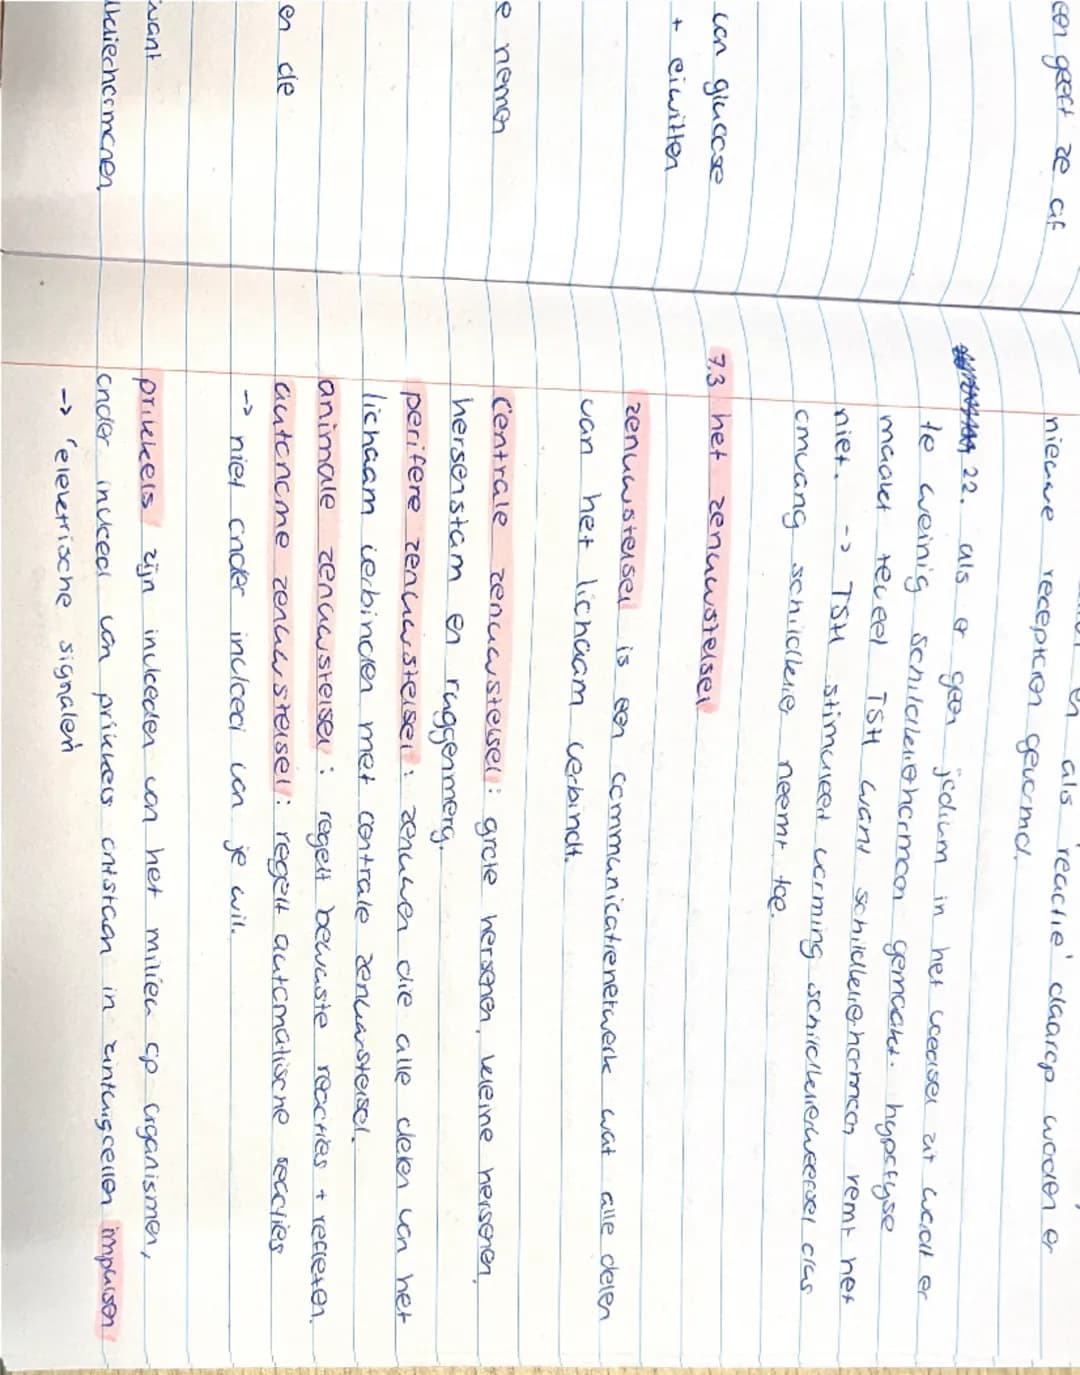 een geeft ze af
van glucose
+ eiwitten
e nemen
en de
want
klierhormonen,
en als reactie daarop worden er
nieuwe receptoren gevormd.
22. als er geen jodium in het voedsel zit wordt er
te weinig schildklierhormoon gemaakt. hypofyse
maakt teveel TSH want schildklierhormoon remt het
niet. -> TSH stimuleert vorming schildklierweefsel dus
omvang schildklier neemt toe.
7.3 het zenuwstelsel
zenuwstelsel is een communicatienetwerk wat alle delen
van het lichaam verbindt.
centrale zenuwstelsel: grote hersenen, kleine hersenen,
hersenstam en ruggenmerg.
perifere zenuwstelsel: zenuwen die alle delen van het
lichaam verbinden met centrale zenuwstelsel.
animale zenuwstelsel: regelt bewuste reacties + reflexen.
autonome zenuwstelsel: regelt automatische reacties
-> niet onder invloed van je wil.
prikkels zijn invloeden van het milieu op organismen,
onder invloed van prikkels ontstaan in zintuigcellen impulsen
-> elektrische signalen